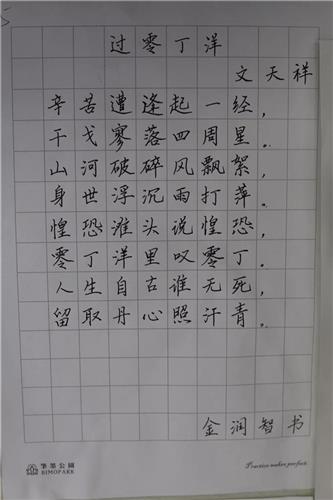 过零丁洋
文天祥
辛苦遭逢起一经，
干戈寥落四周星。
山河破碎风飘絮，
身世浮沉雨打萍。
惶恐滩头说惶恐，
零丁洋里叹零丁。
人生自古谁无死，
留取丹心照汗青。
金润智书
筆墨公園
BIMOPARK
Practice makes perfect.